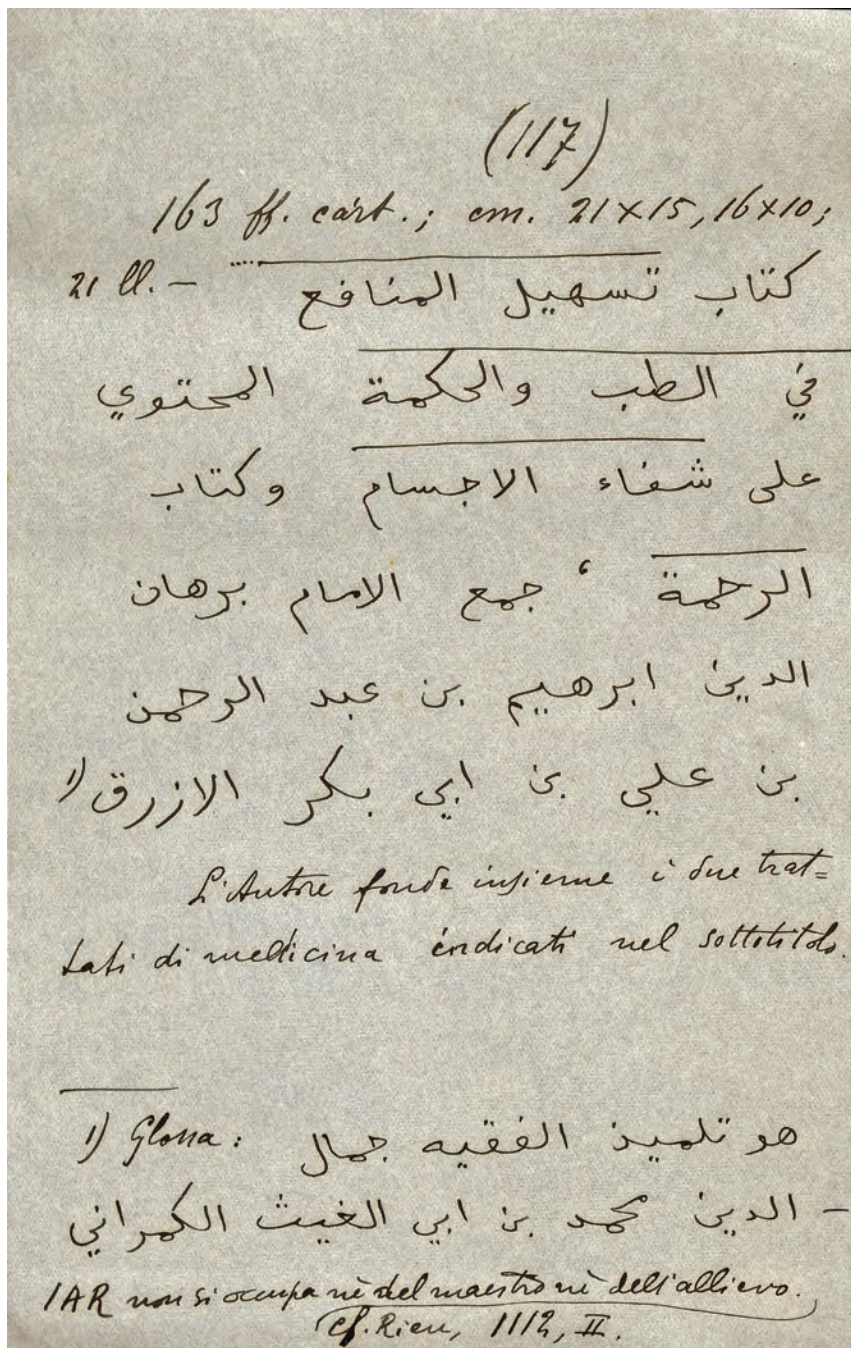 (117)
163 ff. cart.; cm. 21×15, 16×10;
21 ll. — كتاب تسهيل المنافع
في الطب والحكمة المحتوي
على شفاء الاجسام وكتاب
الرحمة ، جمع الامام برهان
الدين ابرهيم بن عبد الرحمن
بن علي بن ابي بكر الازرق 1)
L'Autore fonde insieme i due trat=
tati di medicina indicati nel sottotitolo.
1) Glossa: هو تلميذ الفقيه جمال
الدين محمد بن ابي الغيث الكمراني –
IAR non si occupa nè del maestro nè dell'allievo.
cf. Rieu, 1112, II.